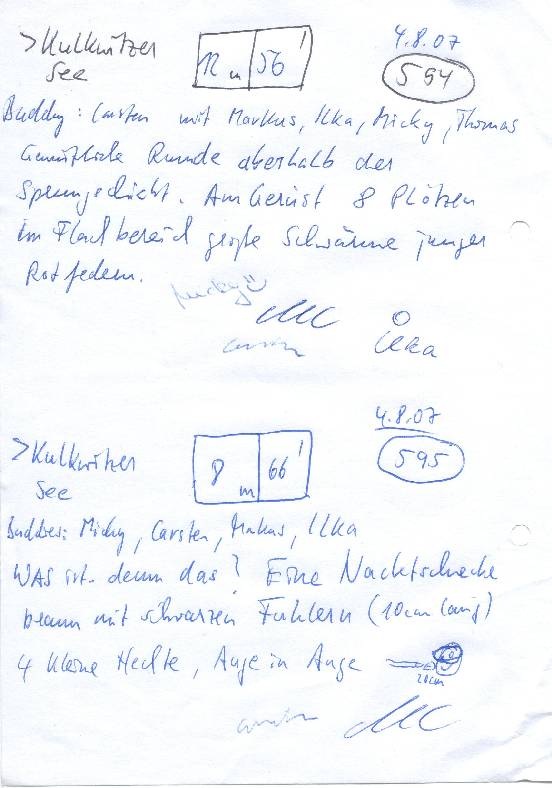 > Kulkwitzer
See
12 m 56'
4.8.07
594
Buddy: Carsten mit Markus, Ilka, Micky, Thomas
Gemütliche Runde oberhalb der
Sprungschicht. Am Gerüst 8 Plötzen
im Flachbereich große Schwärme junger
Rotfedern.
Micky
Ilka
4.8.07
> Kulkwitzer
See
8 m 66'
595
Buddies: Micky, Carsten, Markus, Ilka
WAS ist denn das? Eine Nacktschnecke
braun mit schwarzen Fühlern (10cm lang)
4 kleine Hechte, Auge in Auge
20cm